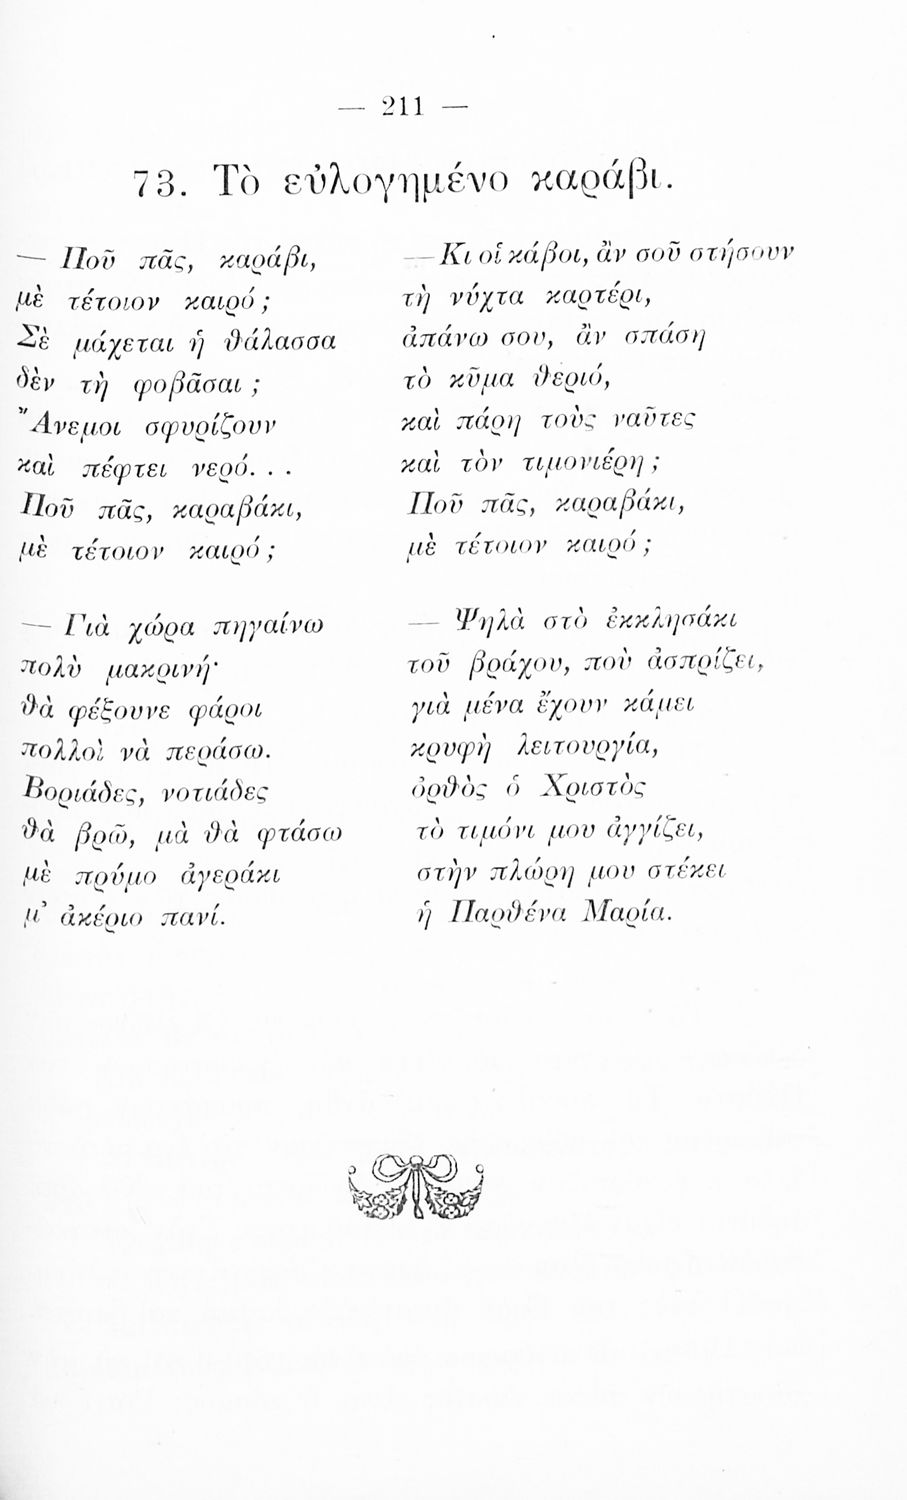 — 211 —
73. Τὸ εὐλογημένο καράβι.
— Ποῦ πᾶς, καράβι,
μὲ τέτοιον καιρό;
Σὲ μάχεται ἡ θάλασσα
δὲν τὴ φοβᾶσαι;
Ἄνεμοι σφυρίζουν
καὶ πέφτει νερό. . .
Ποῦ πᾶς, καραβάκι,
μὲ τέτοιον καιρό;
— Γιὰ χώρα πηγαίνω
πολὺ μακρινή·
θὰ φέξουνε φάροι
πολλοὶ νὰ περάσω.
Βοριάδες, νοτιάδες
θὰ βρῶ, μὰ θὰ φτάσω
μὲ πρύμο ἀγεράκι
μ' ἀκέριο πανί.
— Κι οἱ κάβοι, ἂν σοῦ στήσουν
τὴ νύχτα καρτέρι,
ἀπάνω σου, ἂν σπάση
τὸ κῦμα θεριό,
καὶ πάρη τοὺς ναῦτες
καὶ τὸν τιμονιέρη;
Ποῦ πᾶς, καραβάκι,
μὲ τέτοιον καιρό;
— Ψηλὰ στὸ ἐκκλησάκι
τοῦ βράχου, ποὺ ἀσπρίζει,
γιὰ μένα ἔχουν κάμει
κρυφὴ λειτουργία,
ὀρθὸς ὁ Χριστὸς
τὸ τιμόνι μου ἀγγίζει,
στὴν πλώρη μου στέκει
ἡ Παρθένα Μαρία.